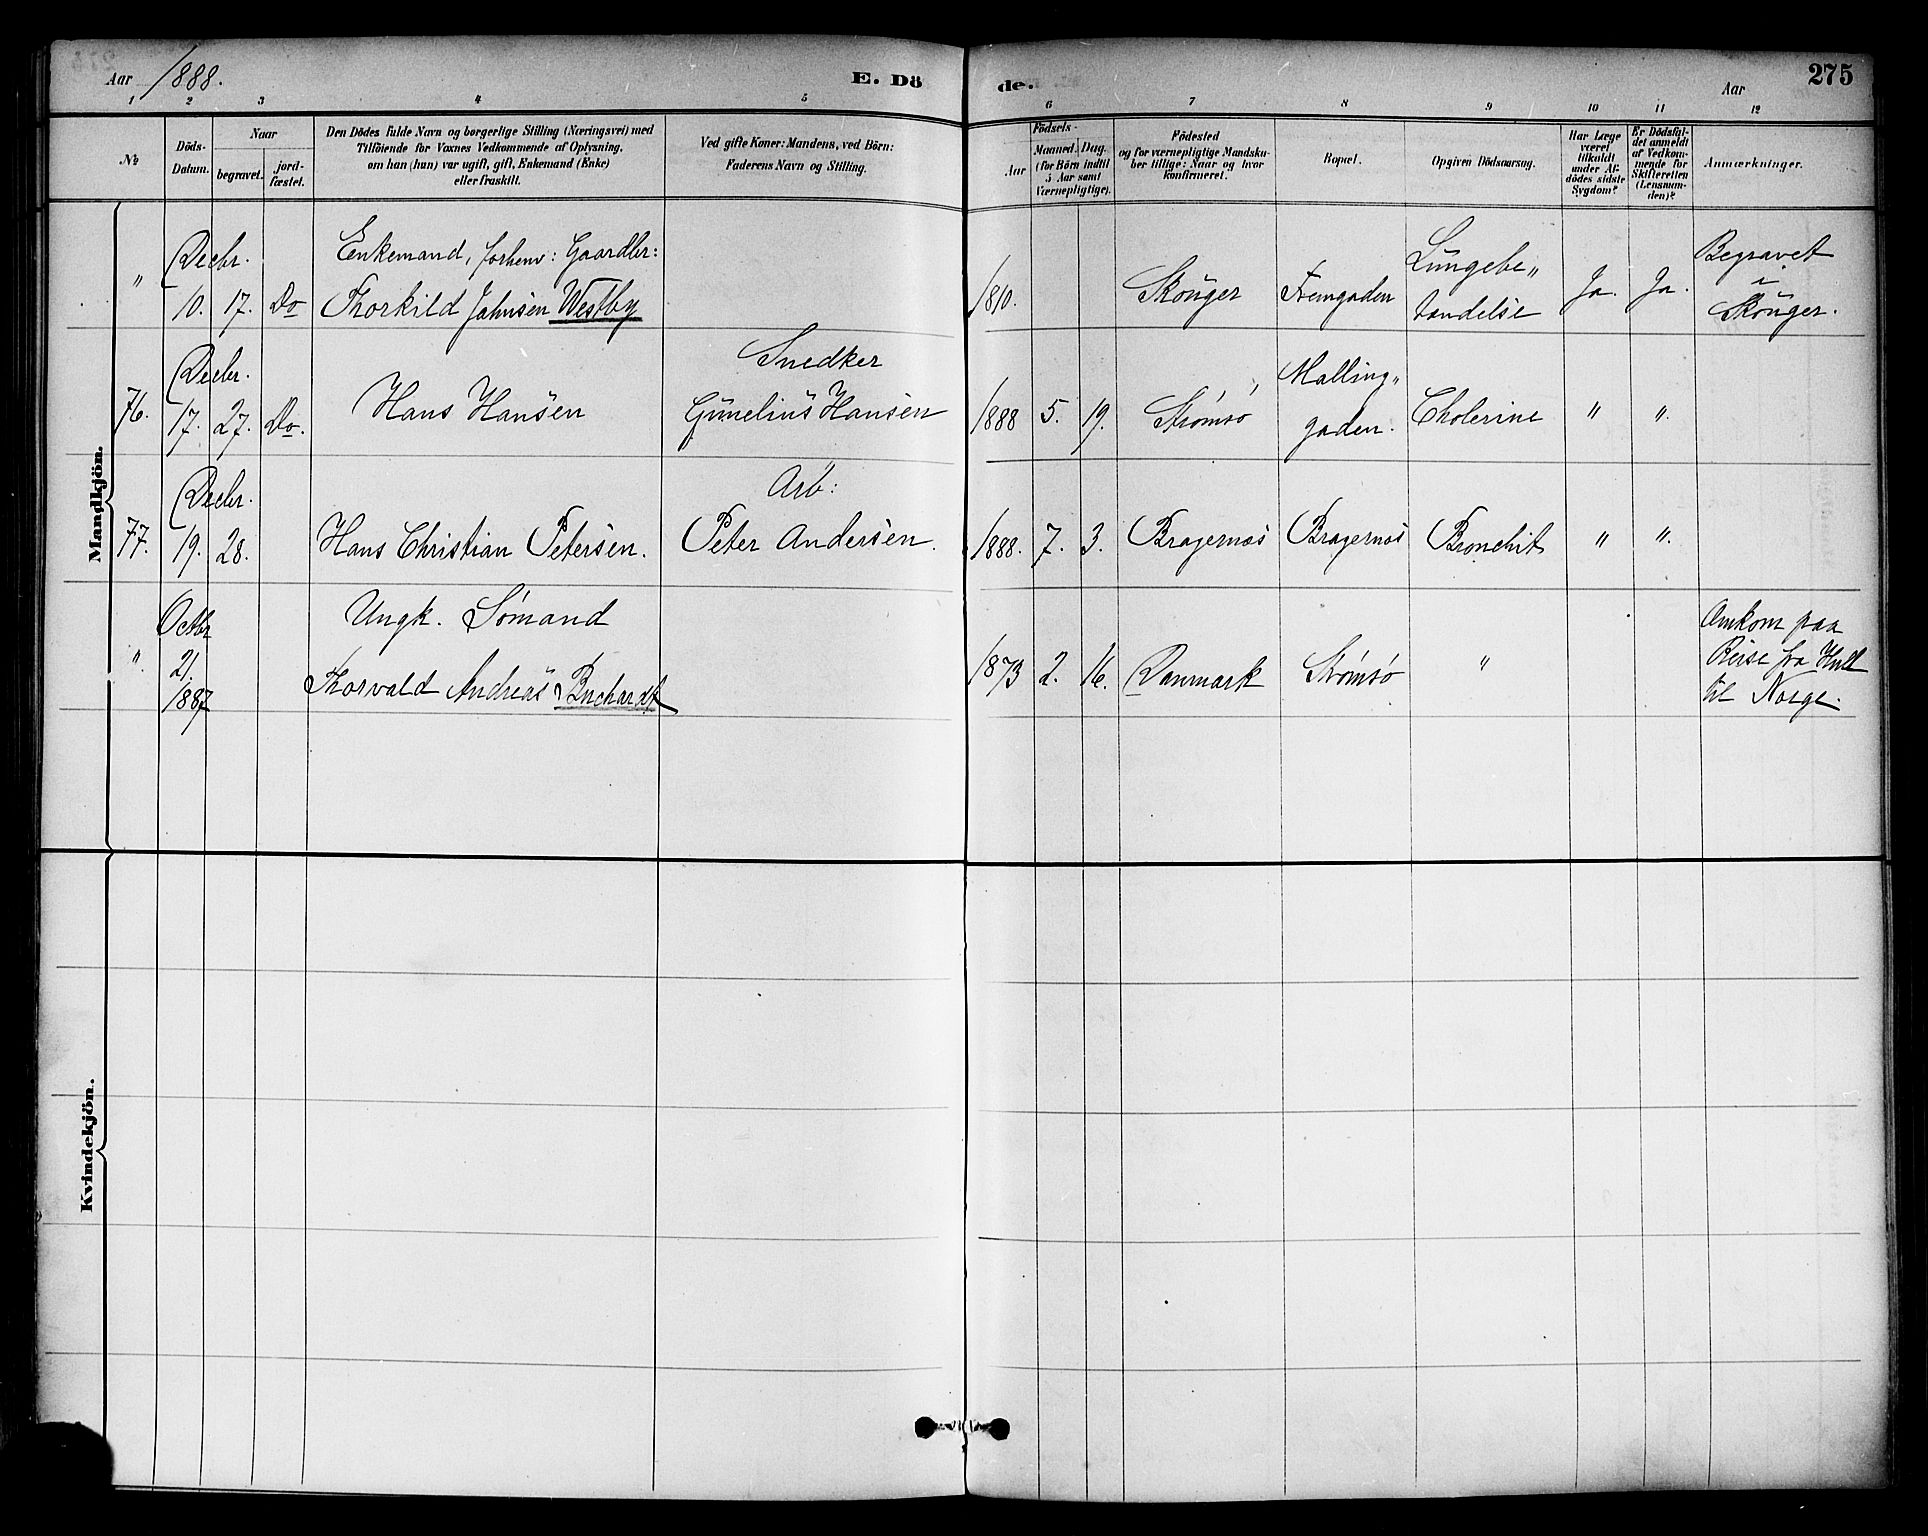 Aar 1888.
E. Dö
de.
Aar
275
1 2 3 4 5 6 7 8 9 10 11 12
No
Döds-
Datum.
Naar
begravet.
jord-
fæstet.
Den Dödes fulde Navn og borgerlige Stilling (Næringsvei) med
Tilföiende for Voxnes Vedkommende af Oplysning,
om han (hun) var ugift, gift, Enkemand (Enke)
eller fraskilt.
Ved gifte Koner: Mandens, ved Börn:
Faderens Navn og Stilling.
Födsels-
Aar
Maaned.
Dag.
(for Börn indtil
5 Aar samt
Værnepligtige).
Födested
og for værnepligtige Mandska-
ber tillige: Naar og hvor
konfirmeret.
Bopæl.
Opgiven Dödsaarsag.
Har Læge
været
tilkaldt
under Af-
dödes sidste
Sygdom?
Er Dödsfal-
det anmeldt
af Vedkom-
mende for
Skifteretten
(Lensman-
den)?
Anmærkninger.
Mandkjön.
" Decbr.
10. 17. Do
Enkemand, forhenv: Gaardbr:
Thorkild Jahnsen Westby
1810.
Skouger
Fremgaden
Lungebe„
tændelse
Ja. Ja.
Begravet
i
Skouger.
76. Decbr.
17. 27. Do.
Hans Hansen
Snedker
Gunelius Hansen
1888 5. 19.
Strømsø
Malling„
gaden.
Cholerine
" "
77. Decbr.
19. 28.
Hans Christian Petersen.
Arb:
Peter Andersen.
1888. 7. 3.
Bragernæs
Bragernæs
Bronchit
" "
" Octbr
21.
1887
Ungk. Sømand
Thorvald Andreas Buchardt
1873 2. 16.
Danmark
Strømsø
"
Omkom paa
Reise fra Hull
til Norge.
Kvindekjön.